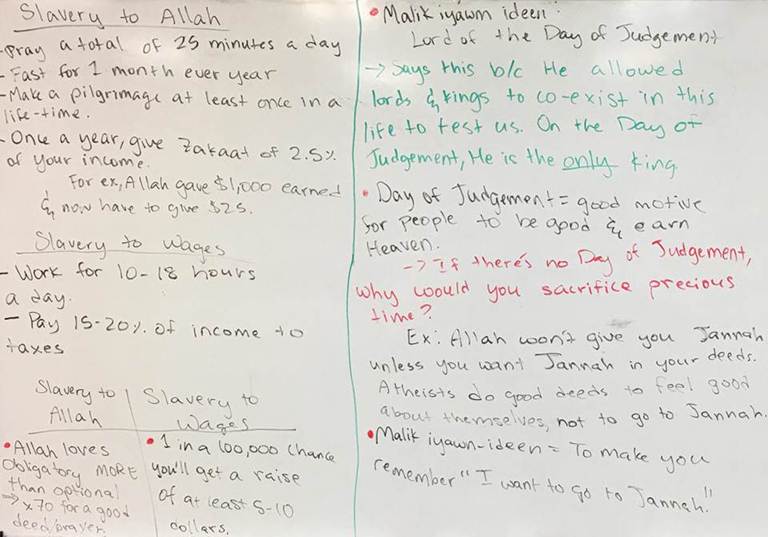 Slavery to Allah
-Pray a total of 25 minutes a day
- Fast for 1 month ever year
-Make a pilgrimage at least once in a
life-time.
- Once a year, give Zakaat of 2.5%
of your income.
For ex, Allah gave $1,000 earned
& now have to give $25.
Slavery to Wages
- Work for 10-18 hours
a day.
- Pay 15-20% of income to
taxes
Slavery to Allah
• Allah loves
obligatory MORE
than optional
→ x70 for a good
deed/prayer.
Slavery to Wages
• 1 in a 100,000 chance
you'll get a raise
of at least 5-10
dollars.
• Malik iyawm ideen:
Lord of the Day of Judgement
→ Says this b/c He allowed
lords & kings to co-exist in this
life to test us. On the Day of
Judgement, He is the only king
• Day of Judgement = good motive
for people to be good & earn
Heaven.
→ If there's no Day of Judgement,
why would you sacrifice precious
time?
Ex: Allah won't give you Jannah
unless you want Jannah in your deeds.
Atheists do good deeds to feel good
about themselves, not to go to Jannah.
• Malik iyawn-ideen = To make you
remember "I want to go to Jannah."